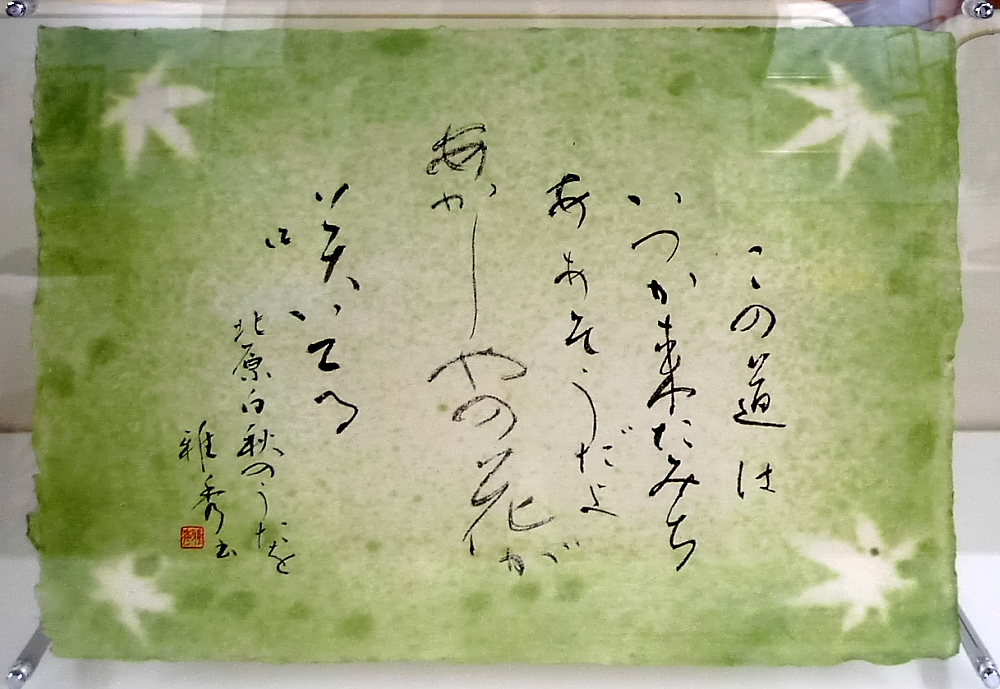 この道は
いつか来たみち
ああそうだよ
あかしやの花が
咲いてる
北原白秋のうたを
雅秀書